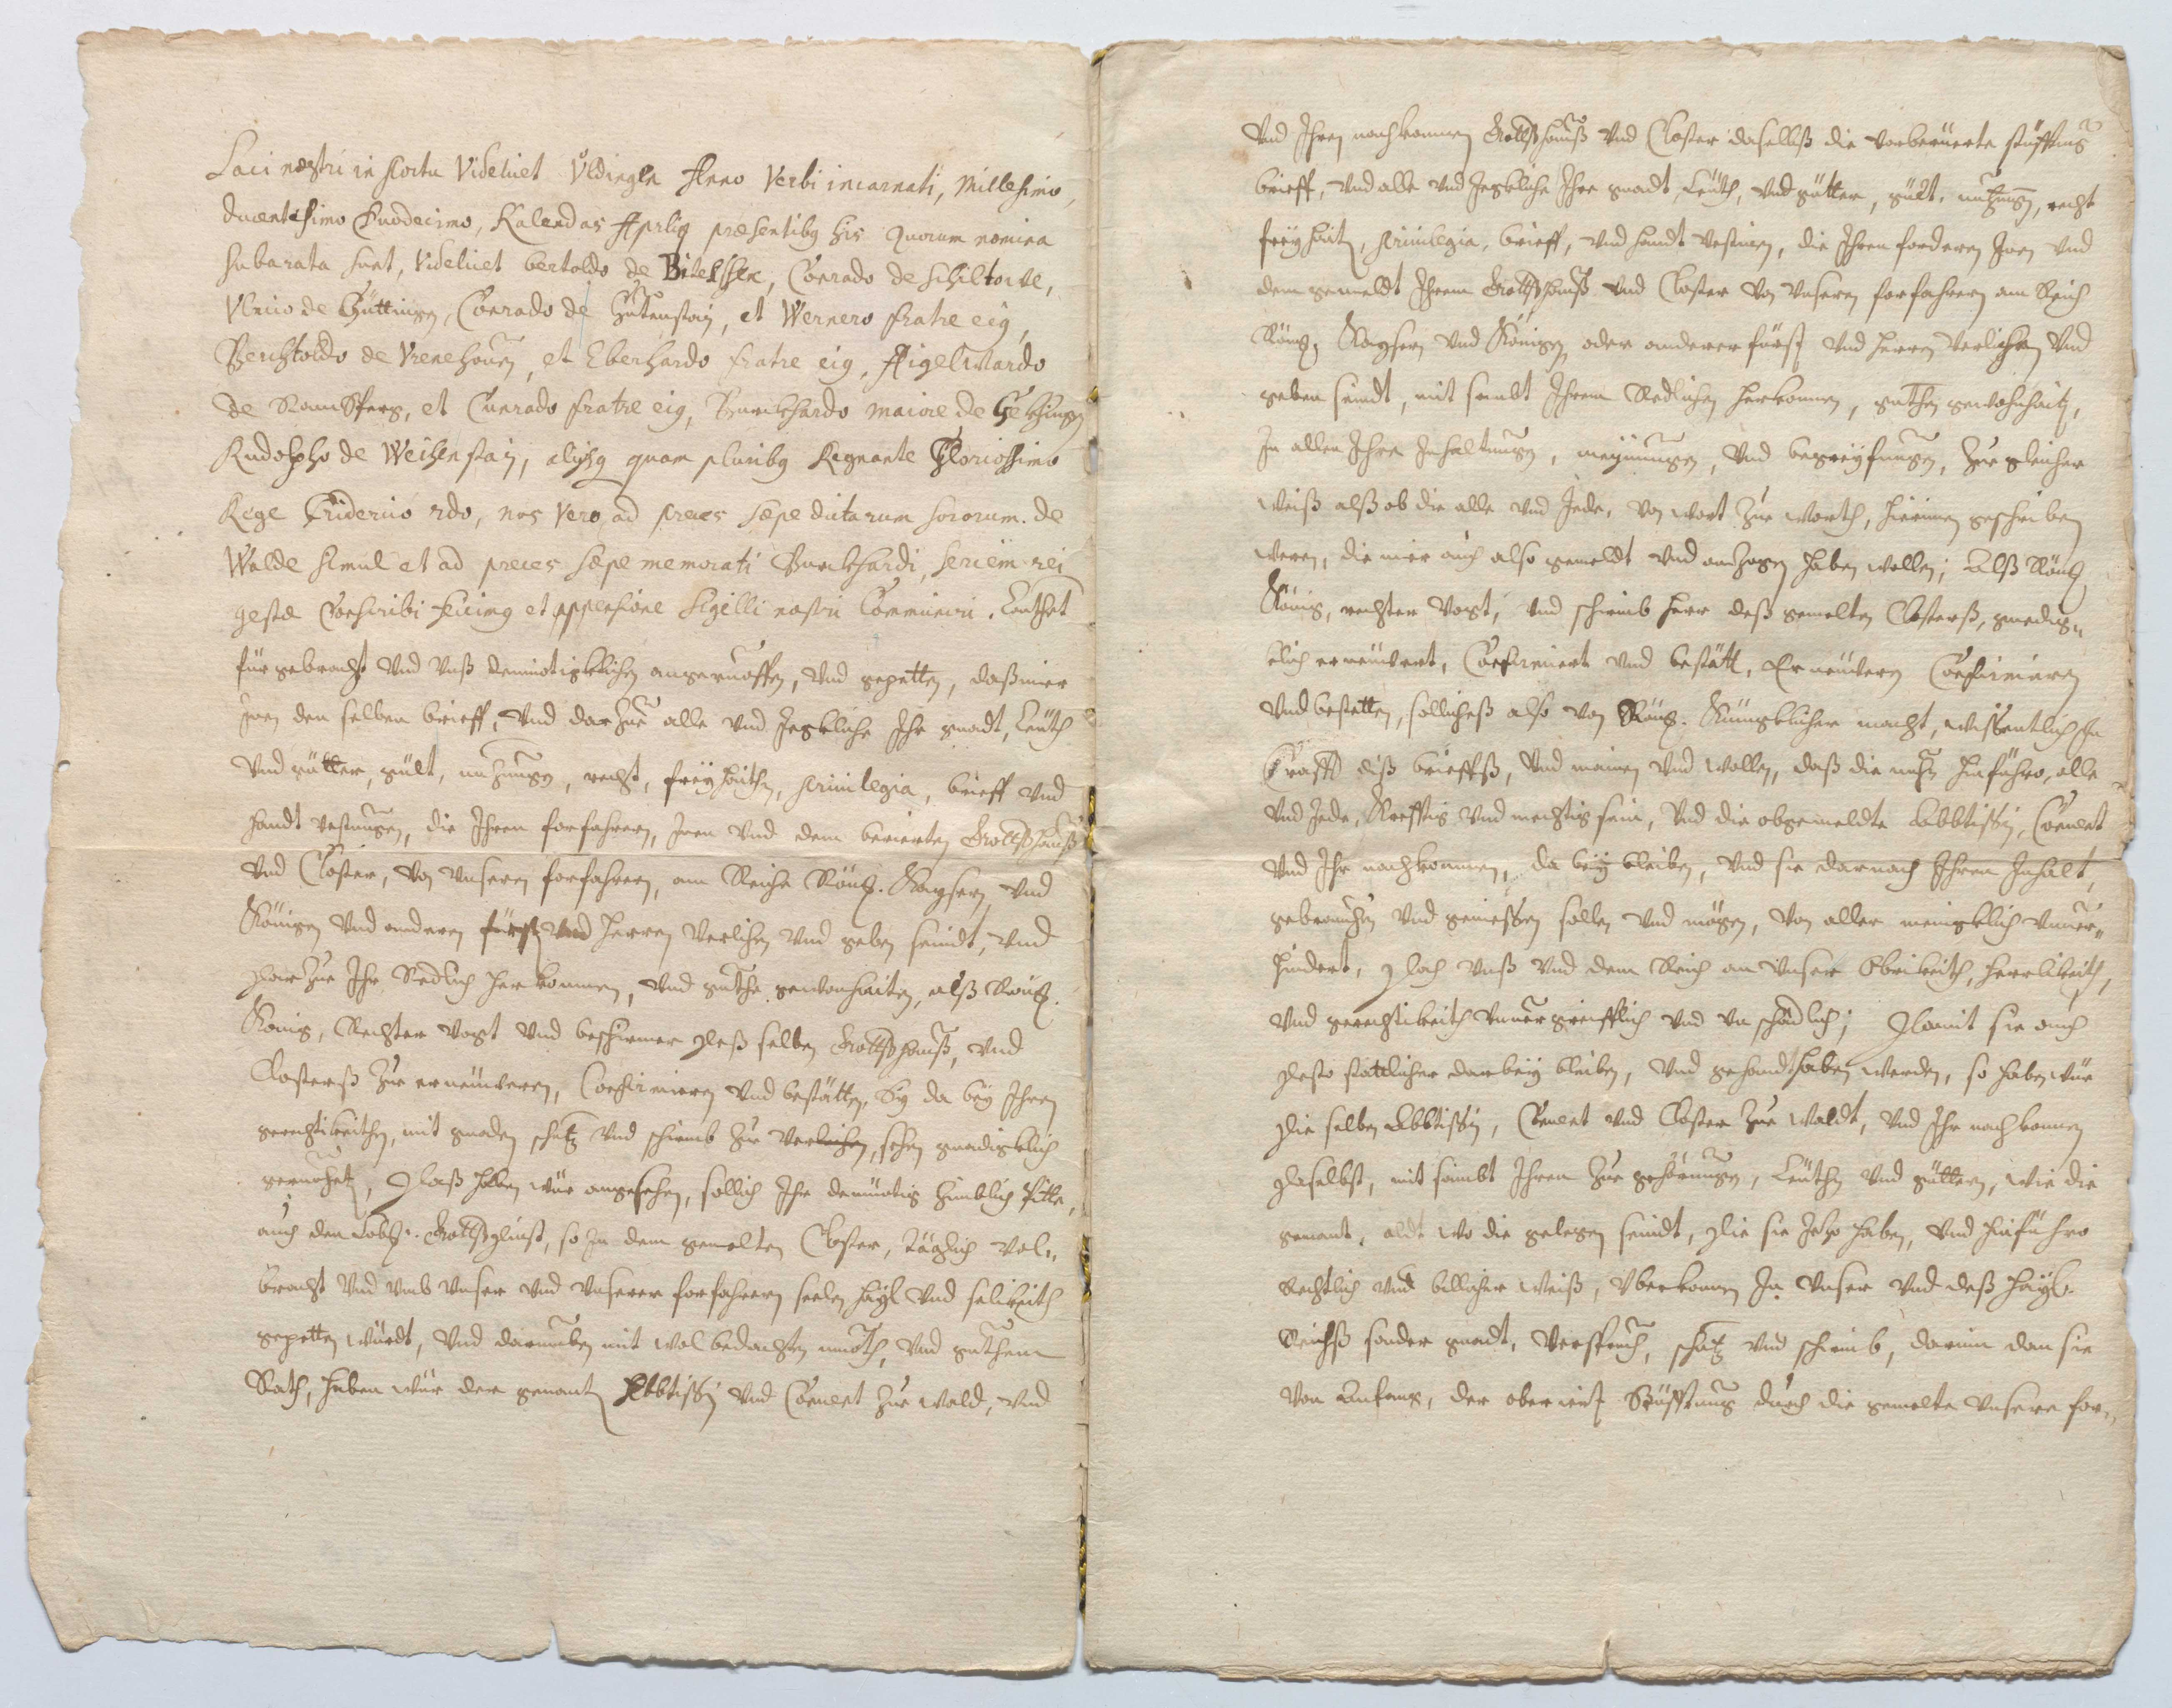 Laci nostri in portu Videlicet Vͦldingen Anno Verbi incarnati, Millesimo
ducentesimo Duodecimo, Kalendas Aprilis præsentibus his quorum nomina
subarata sunt, Videlicet bertoldo de Bitelsshen, Conrado de Schiltowe,
Vlrico de Guttingen, Conrado de Gutenstain, et Wernero fratre eius,
Berchtoldo de Vrenehouen, et Eberhardo fratre eius, Aigelwardo
de Ramsperg, et Cunrado fratre eius, Burckhardo maiore de
Rudolpho de Weihenstain, alijsq quam pluribus Regnante Gloriosissimo
Rege Friderico 2do, nos Vero ad preces sæpe dictarum sororum de
Walde simul et ad preces sæpe memorati Burckhardi, seriem rei
gestæ Conscribi fecimus et appensione sigilli nostri Communiri. Lauthet
für gebracht Vnd Vnß demuotigklichen angeruoffen, Vnd gepetten, daß mier
Inen den selben brieff, Vnd dar Zue alle Vnd Jegkliche Ihr gnadt, Leüth
Vnd gütter, gült, nuzungen, recht, freÿhaithen, priuilegia, brieff Vnd
handt vestungen, die Ihren forfahren, Inen Vnd dem berierten Gottßhauß
Vnd Closter, Von Vnseren forfahren, am Reiche Römis. Kaysern Vnd
Königen Vnd anderen fürsten Vnd Herren Verlichen Vnd geben seindt, Vnd
Dar Zue Ihr Redlich Herkommen, Vnd guthe gewonhaiten, alß Römis.
König, Rechter Vogt Vnd beschirmer Deß selben Gottßhauß, Vnd
Closterß Zue erneüweren, Confirmieren Vnd bestätten, Sy da beÿ Ihren
gerechtikeithen, mit gnaden schutz Vnd schirmb Zue Verleihen, gnedigklich
geruohetten, Daß haben wür angesehen, sollich Ihr demüetig Zimblich Pitte,
auch den Lobl: Gottßdienst, so In dem gemelten Closter, täglich Vol„
bracht Vnd Vmb Vnser Vnd Vnserer forfahren seelen haÿl Vnd selikeith
gepetten würdt, Vnd darumben mit wol bedachten muoth, Vnd guthem
Rath, haben wür der genanten Abbtissin Vnd Conuent Zue Wald, Vnd
Vnd Ihren nachkommen Gottßhauß Vnd Closter daselbß die Vorberüerte stüfftung
brieff, Vnd alle Vnd Jegkliche Ihre gnadt, Leüth, Vnd gütter, gült, nutzungen, recht
freÿhait, priuilegia, brieff, Vnd handt Vestinen, die Ihren forderen Inen Vnd
dem gemeldt Ihrem Gottßhauß Vnd Closter Von Vnseren forfahren am Reich
Römis. Kaysern Vnd Königen oder anderer fürst Vnd Herren Verlichen Vnd
geben seindt, mit sambt Ihrem Redlichen Herkommen, guthen gewohnhait,
In allen Ihre Inhaltungen, meÿnungen, Vnd begreÿfungen, Zue gleicher
weiß alß ob die alle Vnd Jede, Von Wort Zue Worth, hierinnen geschriben
weren, die mier auch also gemeldt Vnd anzogen haben wollen; Alß Römis
König, rechter Vogt, Vnd schirmb Herr deß gemelten Closterß, gnedig„
klich erneüwert, Confirmiert Vnd bestätt, Erneüwern Confirmieren
Vnd bestetten, sollicheß also Von Römis. Künigklicher macht, wissentlich In
Crafft diß brieffß, Vnd mainen Vnd wollen, daß die nun hinführo, alle
Vnd Jede, Krefftig Vnd mechtig sein, Vnd die obgemeldte Abbtissin, Conuent
Vnd Ihr nachkommen, da beÿ bleiben, Vnd sie darnach Ihrem Inhalt,
gebrauchen Vnd geniessen sollen Vnd mögen, Von aller meingklich Vnuer„
hindert, Doch Vnß Vnd dem Reich an Vnser Obrikeith, Herrlikeith,
Vnd gerechtikeith Vnuergreifflich Vnd Vnschädlich; Damit sie auch
Desto stattlicher darbeÿ bleiben, Vnd gehandthaben werden, so haben wür
Die selben Abbtissin, Conuent Vnd Closter Zue Waldt, Vnd Ihr nachkommen
Daselbst, mit sambt Ihren Zue gehörungen, Leüthen Vnd güttern, wie die
genant, ald wo die gelegen seindt, Die sie Jezo haben, Vnd hinführo
Rechtlich Vnd billicher weiß, Vberkommen In Vnser Vnd deß Haÿl.
Reichß sonder gnadt, Verspruch, schutz Vnd schirmb, darinn dan sie
Von Anfang, der oberierten Stüfftung durch die gemelten Vnsere for„